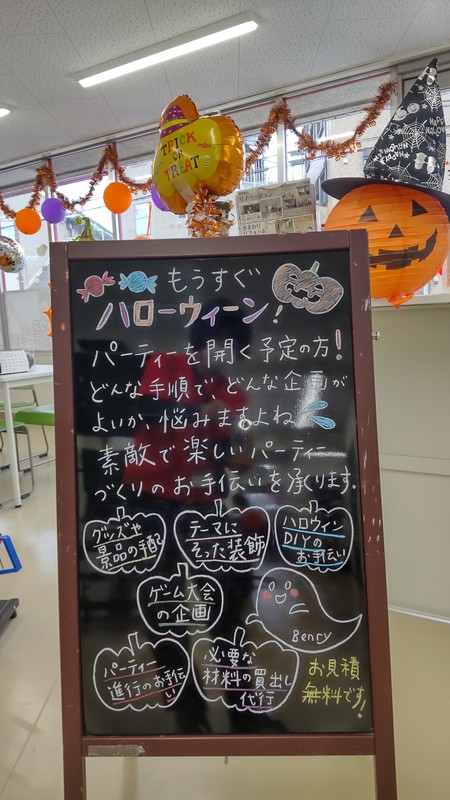 TRICK
OR
TREAT
HAPPY
もうすぐ
ハローウィーン!
パーティーを開く予定の方!
どんな手順で、どんな企画が
よいか、悩みますよね
素敵で楽しいパーティー
づくりのお手伝いを承ります.
グッズや
景品の手配
テーマに
そった装飾
ハロウィン
DIYの
お手伝い
ゲーム大会
の企画
Benry
パーティー
進行のお手伝い
必要な
材料の買出し
代行
お見積
無料です!